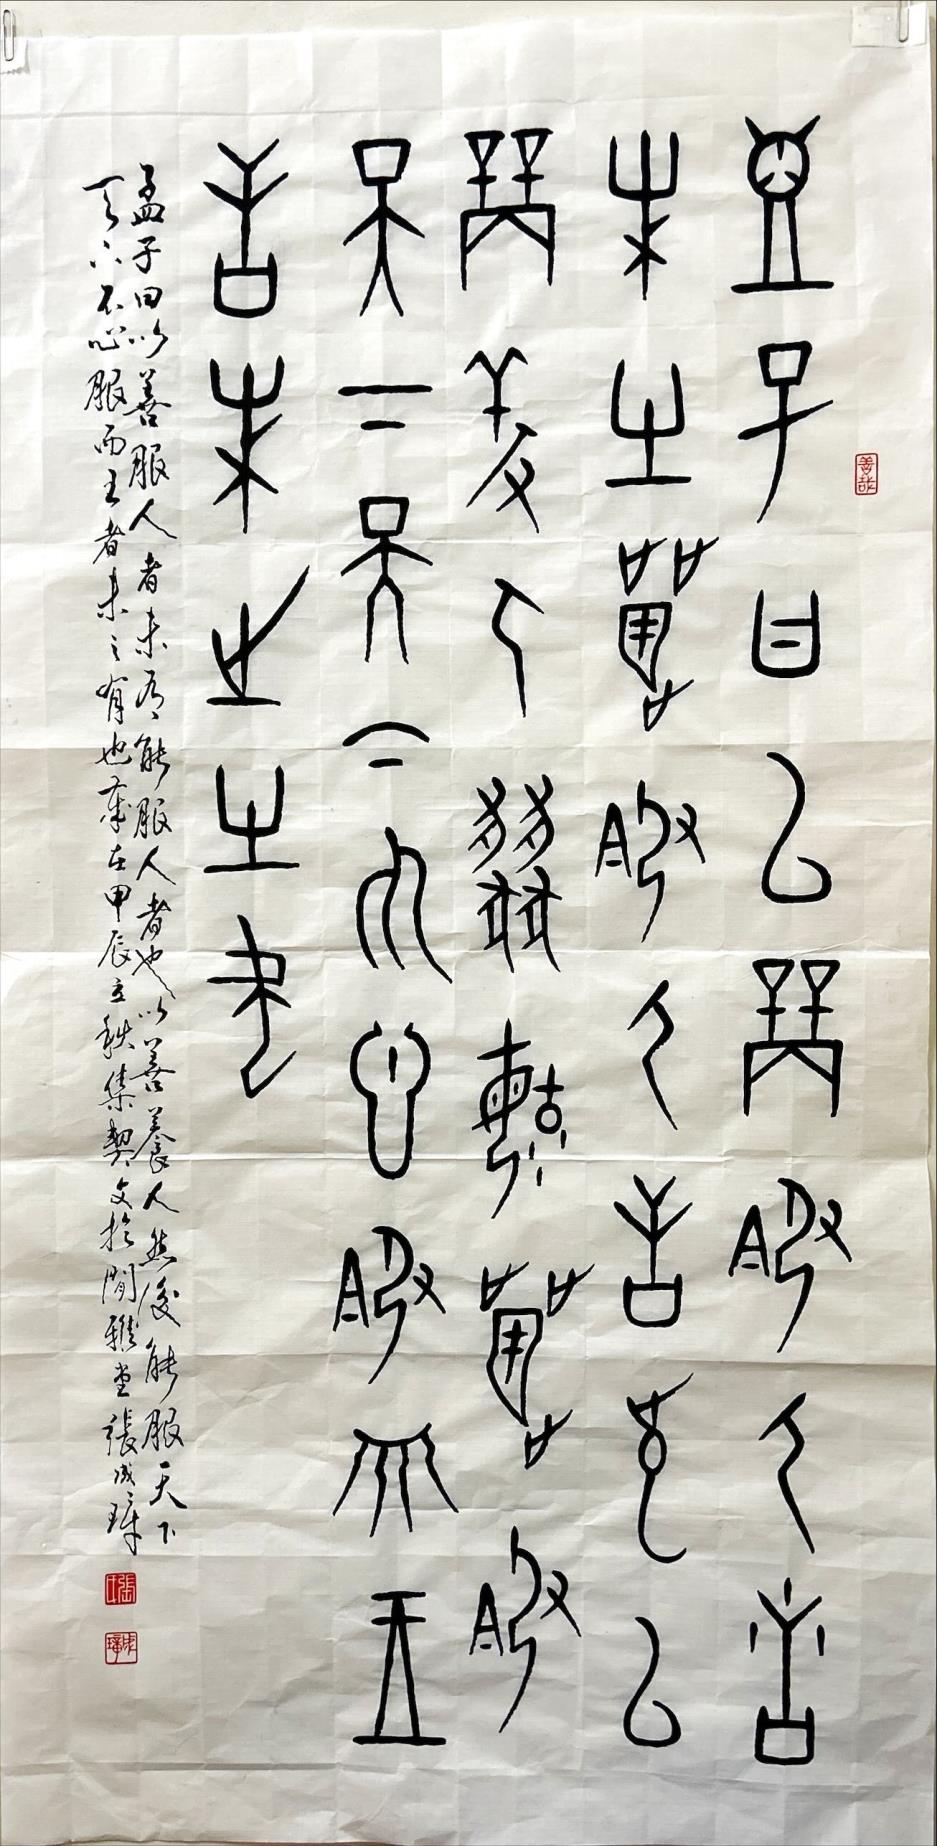 善哉
孟子曰以善服人者
未有能服人者也以
善養人然後能服
天下天下不心服而王
者未之有也
孟子曰以善服人者未有能服人者也以善養人然後能服天下
天下不心服而王者未之有也歲在甲辰立秋集契文於閒雅堂張成璋
成璋